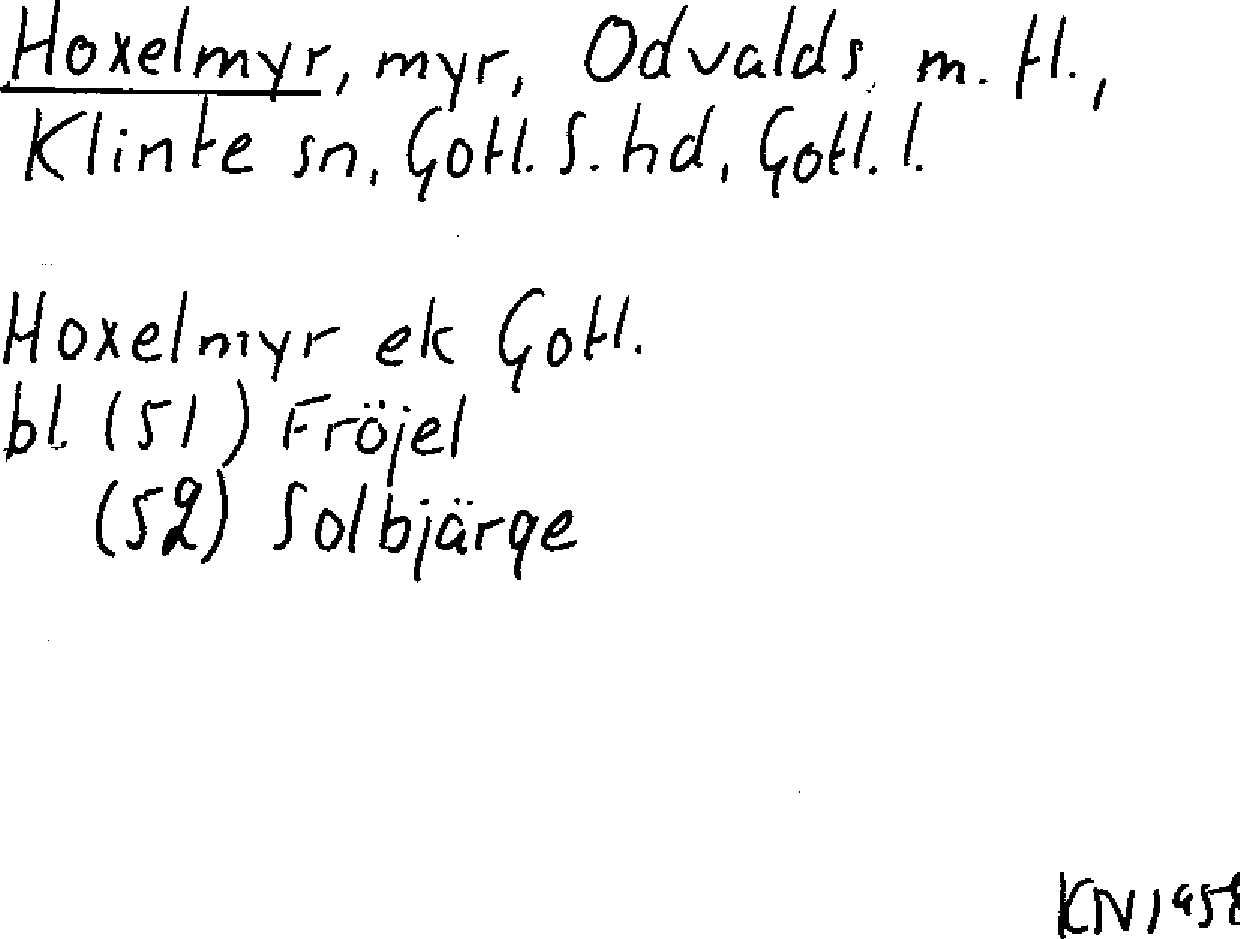 Hoxelmyr, myr, Odvalds m. fl.,
Klinte sn, Gotl. S. hd, Gotl. l.
Hoxelmyr ek Gotl.
bl. (51) Fröjel
(52) Solbjärge
KN 1958